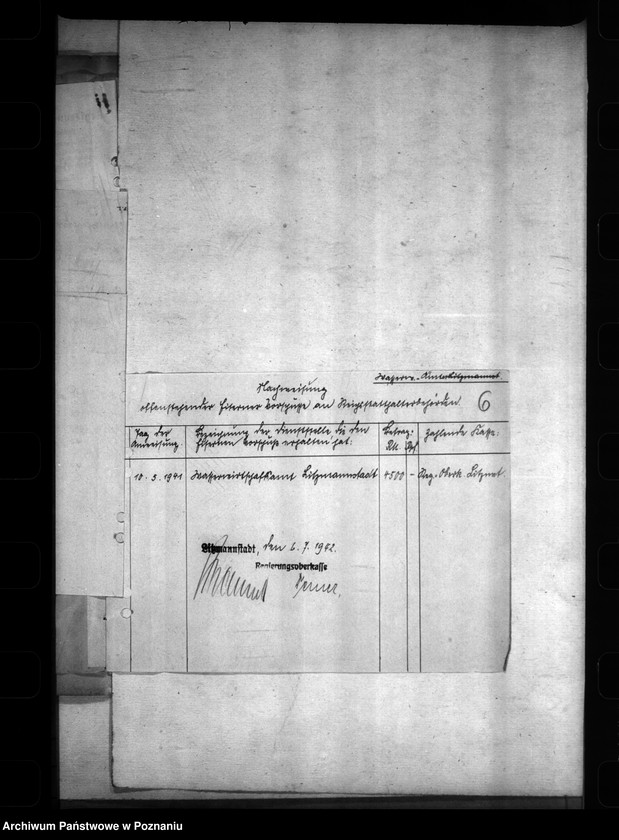 Nachweisung
offenstehender Eiserner Vorschüsse an Reichsstatthalterbehörden. 6
Tag der
Anweisung
Bezeichnung der Dienststelle die den
Eisernen Vorschuß erhalten hat:
Betrag:
RM. Rpf
Zahlende Kasse:
10.3.1941 Wasserwirtschaftsamt Litzmannstadt 4500 - Reg. Oberk. Litzmst.
Litzmannstadt, den 6.7.1942.
Regierungsoberkasse
Archiwum Państwowe w Poznaniu